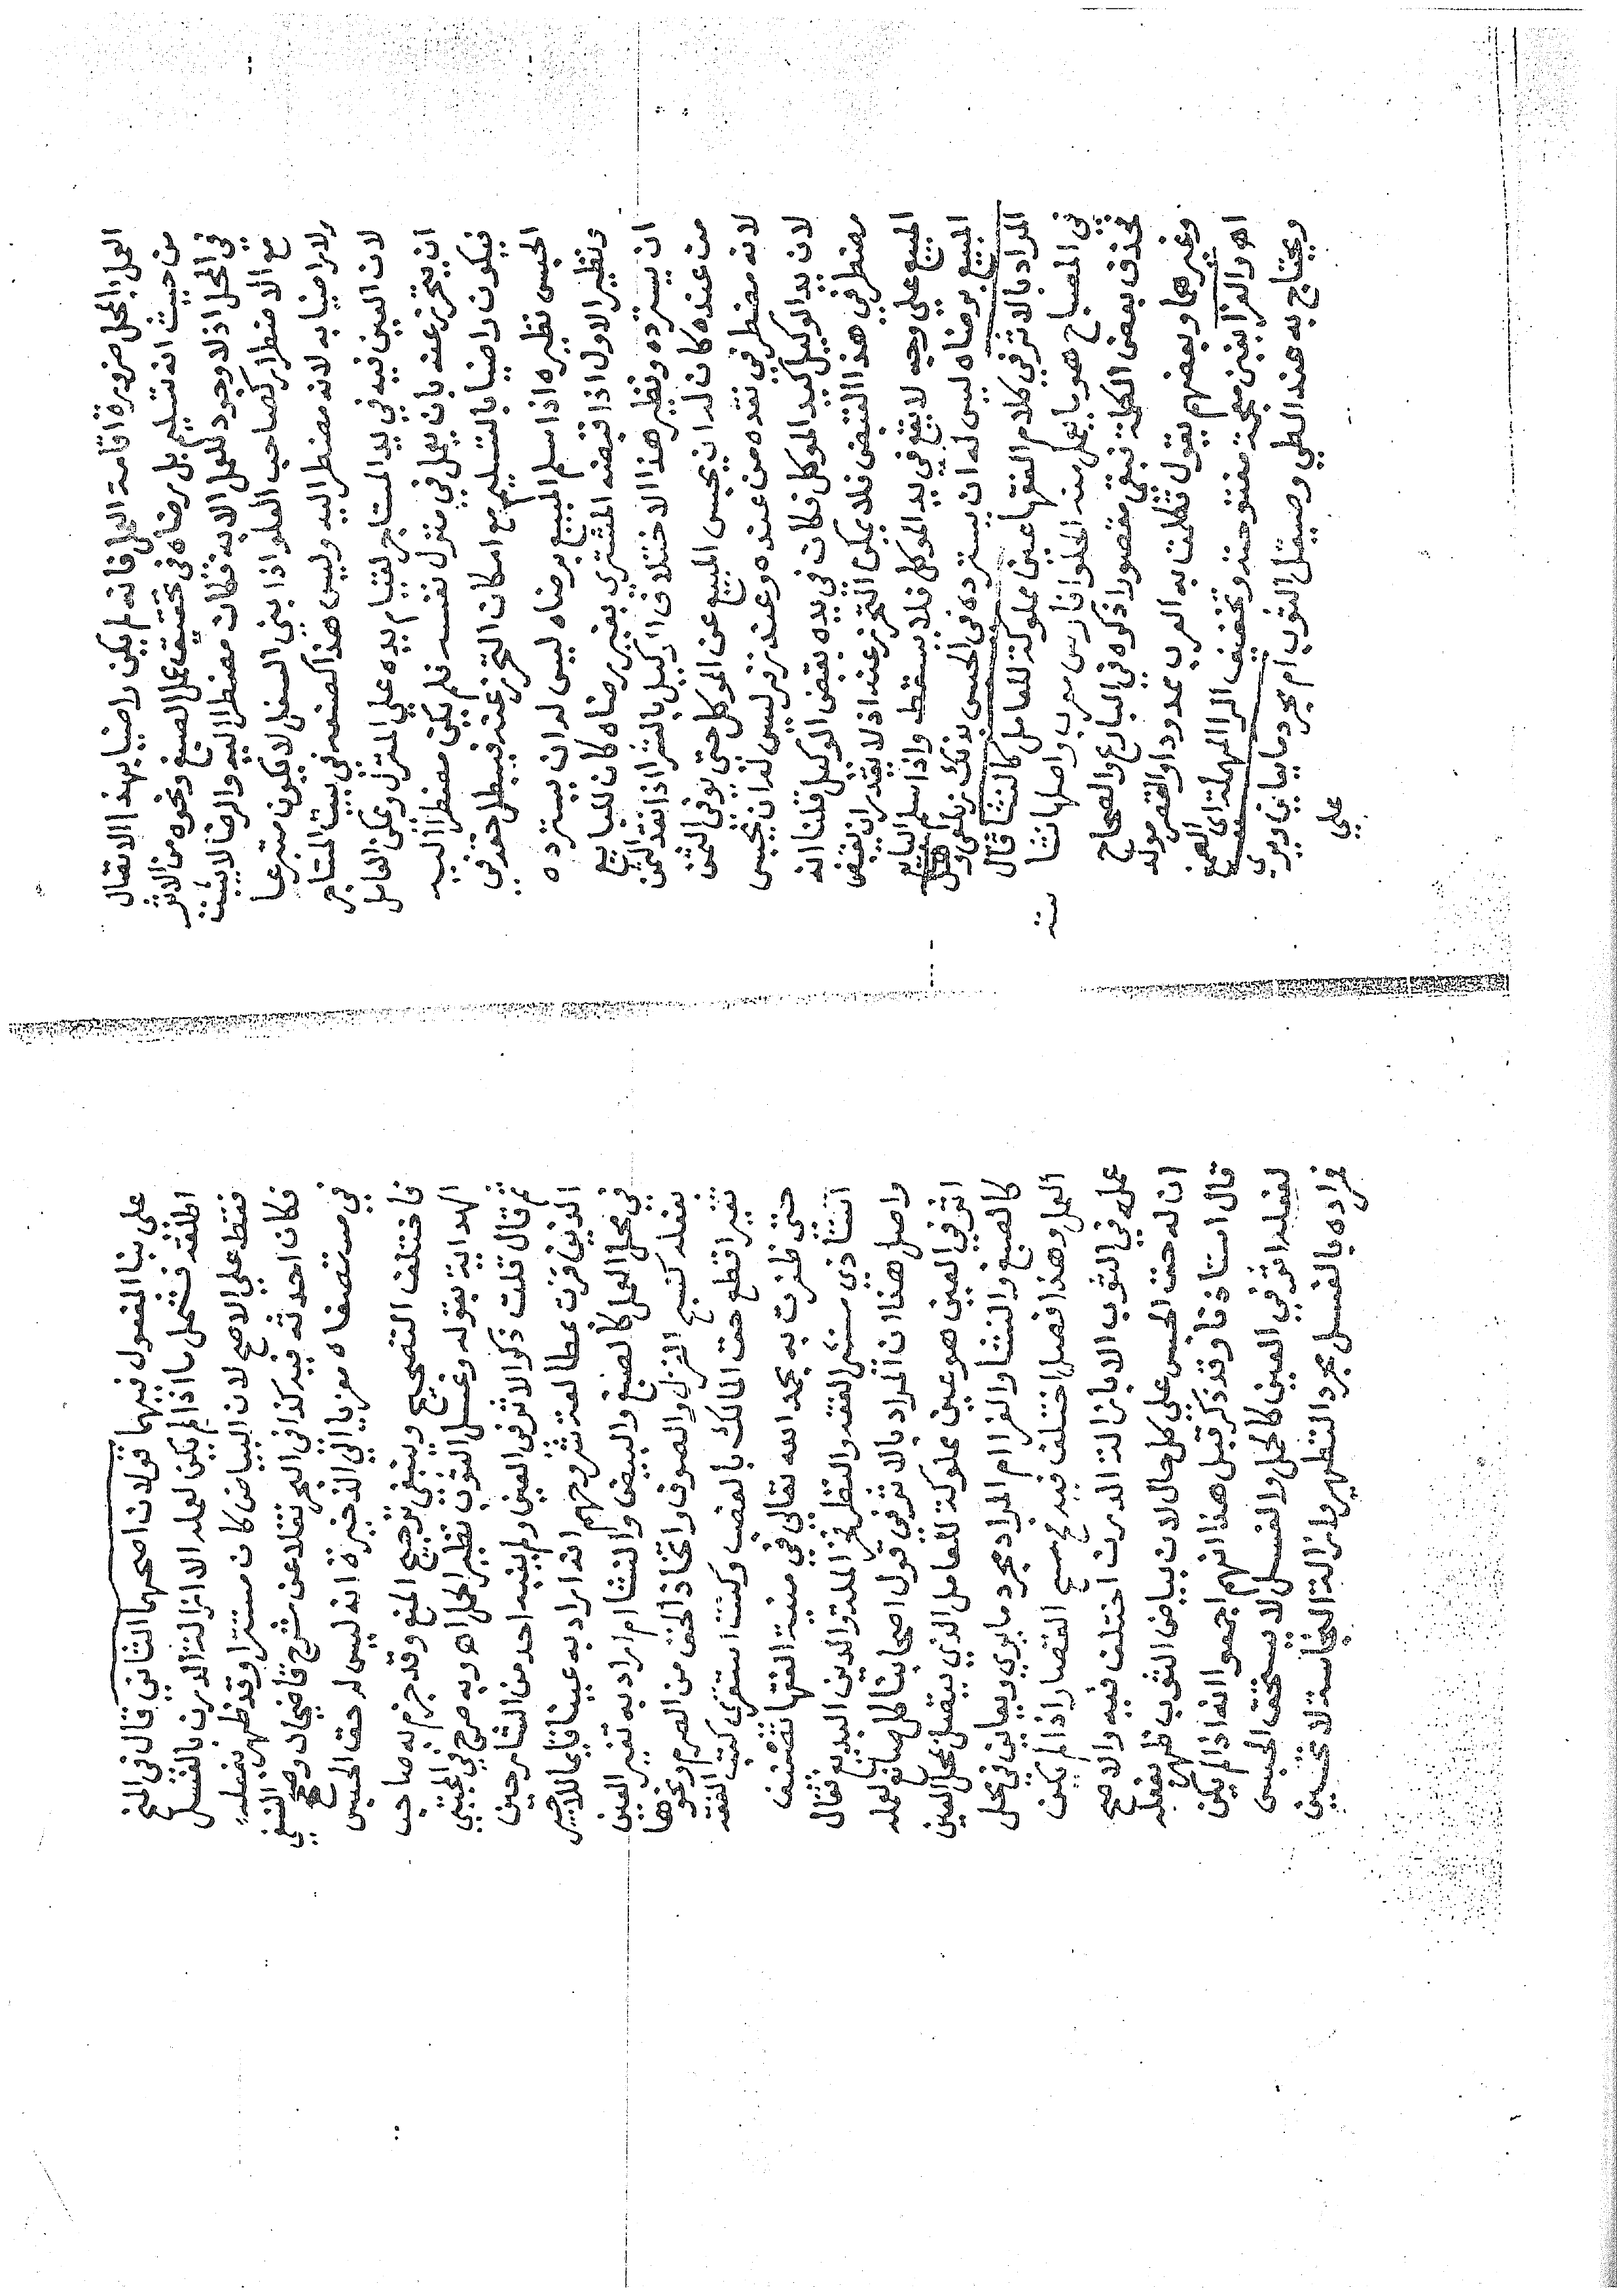 العمل بالمحل ضرورة اقامة العمل فانه لم يكن راضيا بهذا الاتصال
من حيث انه تسليم بل رضاه في تحقيق عمل الصبغ ونحوه من الاثر
في المحل اذ لا وجود للعمل الا به فكان مضطرا اليه والرضا لا يثبت
مع الاضطرار كصاحب العلو اذا بنى السفل لا يكون متبرعا
ولا راضيا به لانه مضطر اليه وليس هذا كصنعه في بيت المستاجر
لان العين فيه في يد المستاجر لقيام يده علي المنزل وتمكن العامل
ان يتحرز عنه بان يعمل في منزل نفسه فلم يكن مضطرا اليه
فيكون راضيا بالتسليم مع امكان التحرز عنه فيبطل حقه في
الحبس نظيره اذا سلم المبيع برضاه ليس له ان يسترده
ونظير الاول اذا قبضه المشتري بغير رضاه كان للبايع
ان يسترده ونظير هذا الاختلاف الوكيل بالشرا اذا نقد الثمن
من عنده كان له ان يحبس المبيع عن الموكل حتى يوفى الثمن
لانه مضطر في نقده من عنده وعند زفر ليس له ان يحبس
لان يد الوكيل كيد الموكل فكان في يده بقبض الوكيل قلنا انه
مضطر في هذا القبض فلا يمكن التحرز عنه اذ لا يقدر ان يقبض
المبيع علي وجه لا يقع في يد الموكل فلا يسقط واذا سلم البايع
المبيع برضاه ليس له ان يسترده في الحبس بذلك زيلعي وهل
المراد بالاثر في كلام الفقها عين مملوكة للعامل كالنشا قال
في المصباح هو ما يعمل من الحلو فارسي معرب واصلها نشا
فحذف بعض الكلمة فبقي مقصورا ذكره في البارع والصحاح
وغيرهما وبعضهم يقول تكلمت به العرب ممدودا والقصر مولد
اهـ والغرا بغين معجمة مفتوحة وتخفيف الرا المهملة اي الصمغ
ويحتاج به عند الطي وصيقل الثوب ام مجرد ما يعاين ويرى
على
على بنا المفعول فيهما قولان اصحهما الثاني قال في المنح
اطلقه فشمل ما اذا لم يكن لعمله الا ازالة الدرن بالغسل
فقط علي الاصح لان البياض كان مستترا وقد ظهر بفعله
فكان احدثه فيه كذا في البحر نقلا عن شرح قاضيخان وصحح النسفي
في مستصفاه معزيا الي الذخيرة انه ليس له حق الحبس
فاختلف التصحيح وينبغي ترجيح المنع وقد جزم به صاحب
الهداية بقوله وغسل الثوب نظير الحمل اهـ وبه صرح في المجتبي
ثم قال قلت ذكر الاثر في العين ولم يبينه احد من الشارحين
الذين قرت مطالعة شروحهم انه اراد به عينا قايما للاجير
في محل العمل كالصبغ والبيض والنشا ام اراد به تغير العين
بفعله كنسج الغزل والصوف واتخاذ الخف من الصرم ونحوها
تغيرا قطع حق المالك بالغصب وكنت استقري كتب الفقه
حتى ظفرت به بحمد الله تعالى في منية الفقها تصنيف
استاذي سند الفقه والنظر فخر الملة والدين البديع فقال
واصل هذا ان المراد بالاثر في قول اصحابنا كل صانع لعمله
اثر في العين هو عين مملوكة للعامل الذي يتصل بمحل العين
كالصبغ والنشا والغرا ام المراد مجرد ما يرى ويعاين في محل
العمل وهذا فصل اختلف فيه فحبس القصار اذا لم يكن
عمله في الثوب الا بازالة الدرن اختلف فيه والاصح
ان له حق الحبس علي كل حال لان بياض الثوب ظهر بفعله
قال استاذنا وقد ذكر قبل هذا انهم اجمعوا انه اذا لم يكن
لفعله اثر في العين كالحمل والغسل لا يستحق الحبس
فمراده بالغسل مجرد التطهير بازالة النجاسة لا تحسين